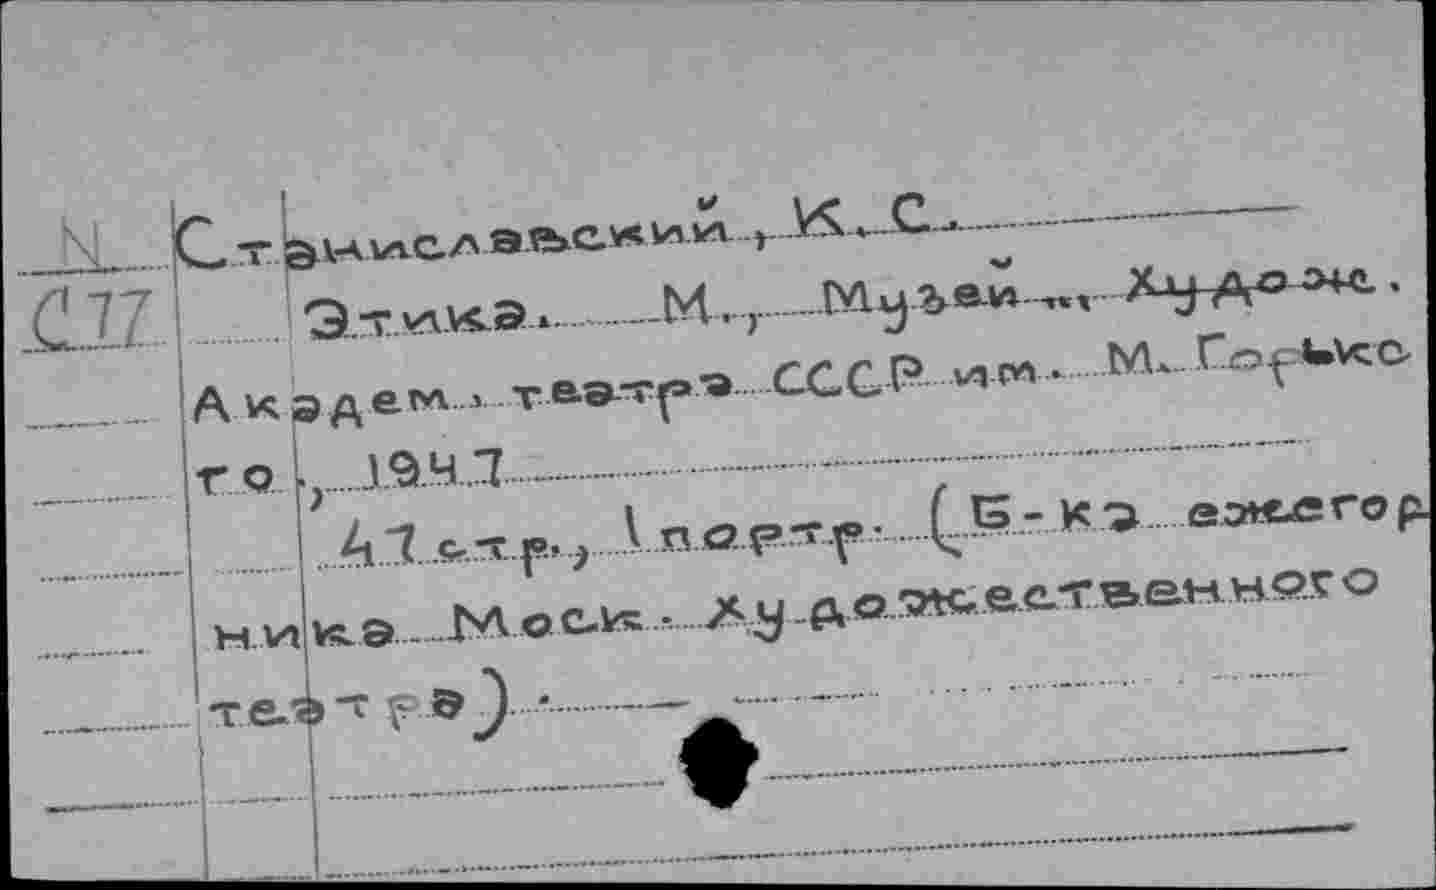 N Станиславский, К. С.
С77 Этика. М., Музей Худож.
Академ. театра СССР им. М. Горько
го, 1947
47 стр., 1 портр. (Б-ка ежегод
ника Моск. Художественного
театра).